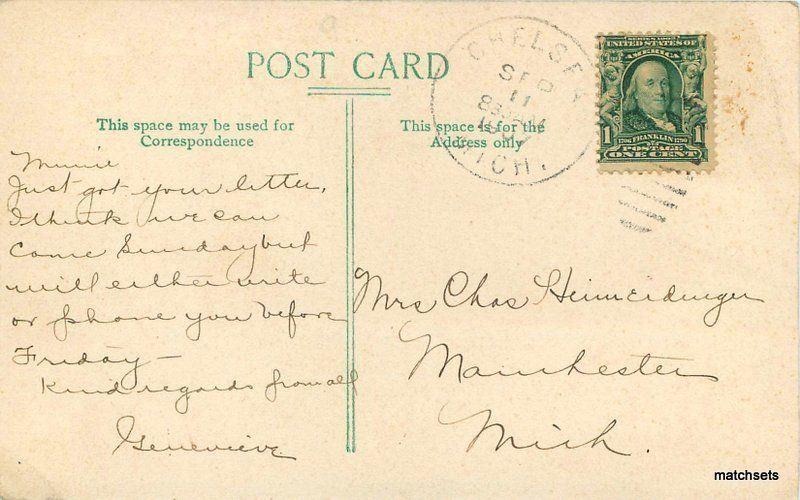 POST CARD
This space may be used for
Correspondence
This space is for the
Address only
CHELSEA
SEP
11
MICH.
SERIES 1902
UNITED STATES OF
AMERICA
1 1706 FRANKLIN 1790 1
POSTAGE
ONE CENT
Minnie
Just got your letter,
I think we can
come Sunday but
will either write
or phone you before
Friday —
Kind regards from all
Genevieve
Mrs Chas Heimerdinger
Manchester
Mich.
matchsets